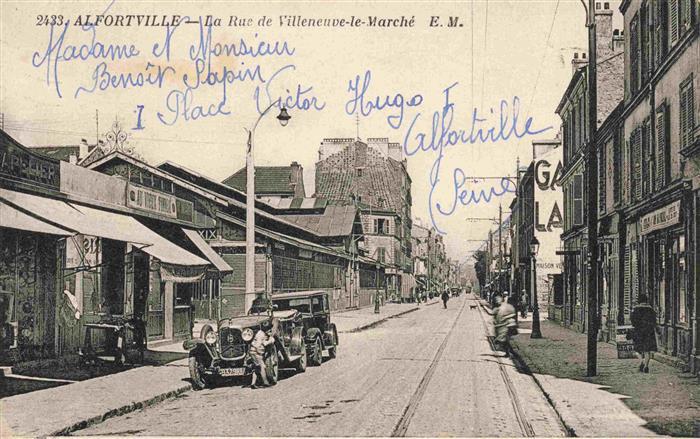 2433. ALFORTVILLE — La Rue de Villeneuve-le-Marché E. M.
Madame et Monsieur
Benoît Sapin
1 Place Victor Hugo 1
Alfortville
Seine